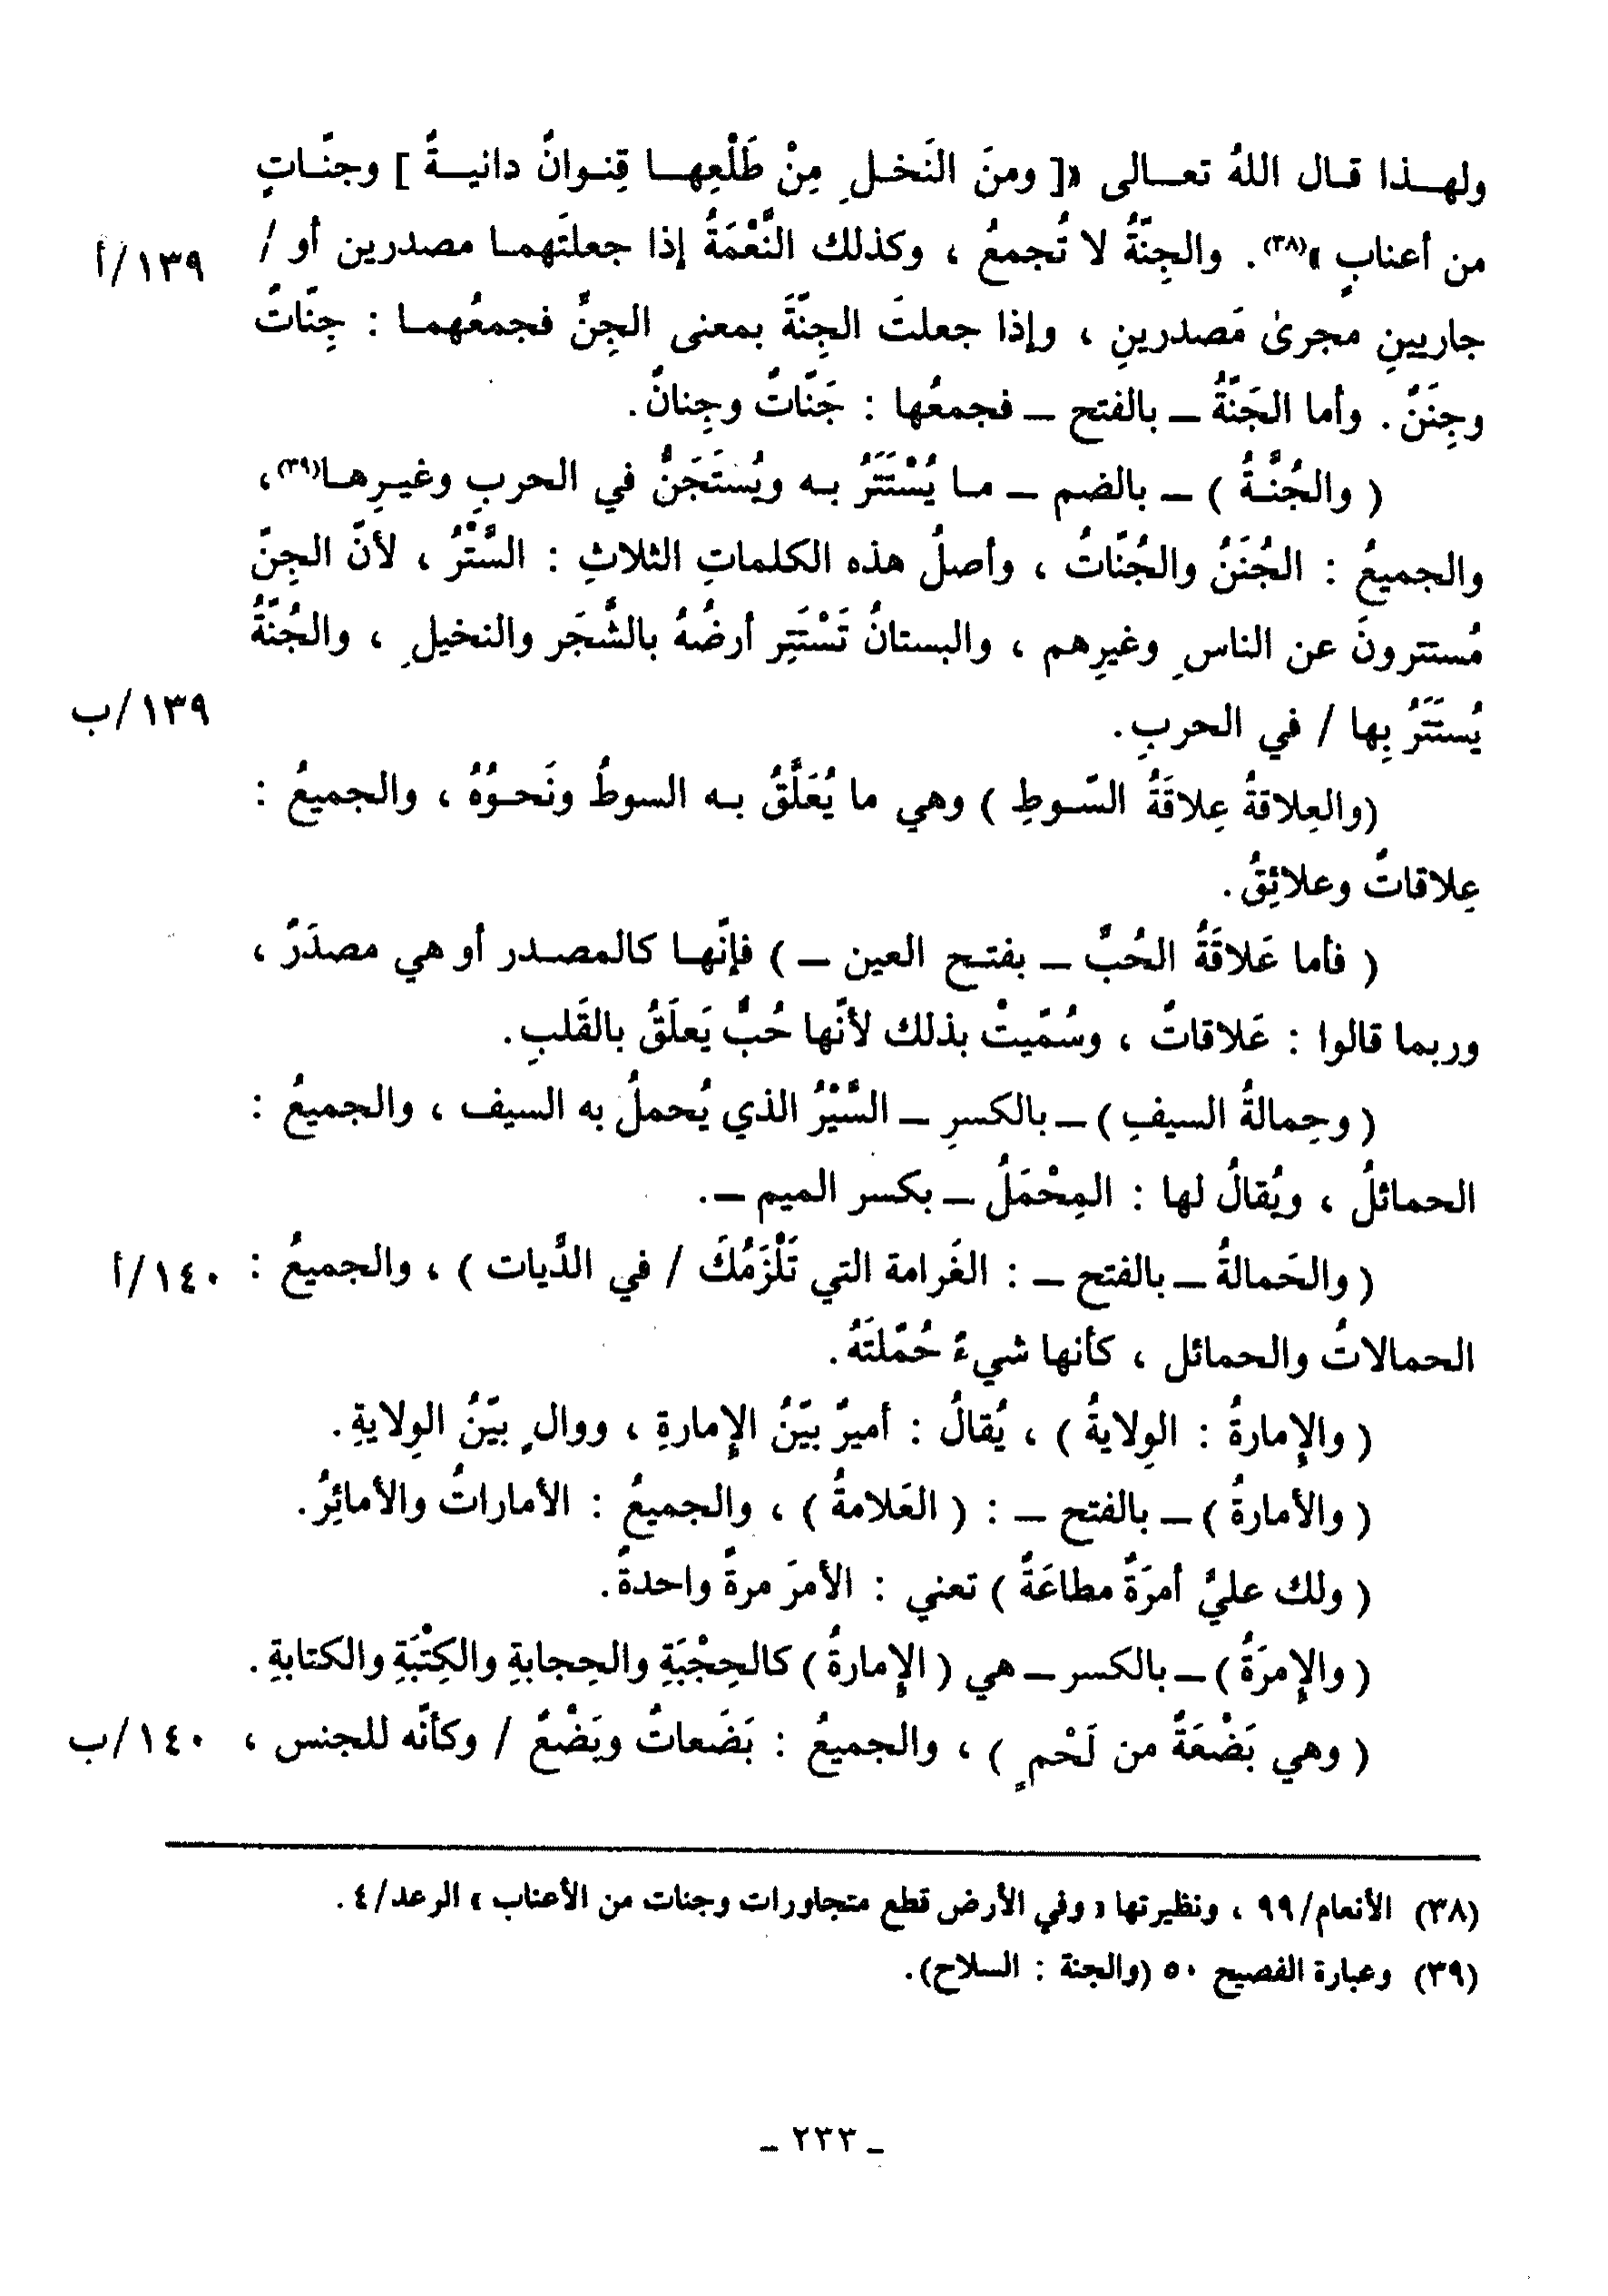 ولهـذا قـال اللهُ تعـالى «[ ومنَ النَخـلِ مِنْ طَلْعِهـا قِنـوانٌ دانيـةٌ ] وجنّـاتٍ
من أعنابٍ »(٣٨). والجِنَّةُ لا تُجمعُ ، وكذلك النَّعْمَةُ إذا جعلتَهمـا مصدرين أو / ١٣٩/أ
جاريينِ مجرىٰ مَصدرينِ ، وإذا جعلتَ الجِنَّةَ بمعنى الجِنِّ فجمعُهمـا : جِنّاتٌ
وجِنَنٌ. وأما الجَنَّةُ ـ بالفتح ـ فجمعُها : جَنّاتٌ وجِنانٌ.
( والجُنَّـةُ ) ـ بالضم ـ مـا يُسْتَتَرُ بـه ويُستَجَنُّ في الحربِ وغيـرِهـا(٣٩)،
والجميعُ : الجُنَنُ والجُنّاتُ ، وأصلُ هذه الكلماتِ الثلاثِ : السَّتْرُ ، لأنّ الجِنّ
مُستترونَ عن الناسِ وغيرِهم ، والبستانُ تَسْتَتِر أرضُهُ بالشَّجَر والنخيلِ ، والجُنَّةُ
يُستَتَرُ بِها / في الحربِ. ١٣٩/ب
(والعِلاقةُ عِلاقَةُ السّـوطِ ) وهي ما يُعَلَّقُ بـه السوطُ ونَحـوُهُ ، والجميعُ :
عِلاقاتٌ وعلائِقُ.
( فأما عَلاقَةُ الحُبِّ ـ بفتـح العين ـ ) فإنّهـا كالمصـدر أو هي مصدَرٌ ،
وربما قالوا : عَلاقاتٌ ، وسُمّيتْ بذلك لأنّها حُبٌّ يَعلَقُ بالقَلبِ.
( وحِمالةُ السيفِ ) ـ بالكسرِ ـ السَّيْرُ الذي يُحملُ به السيف ، والجميعُ :
الحمائلُ ، ويُقالُ لها : المِحْمَلُ ـ بكسر الميم ـ.
( والحَمالةُ ـ بالفتح ـ : الغَرامة التي تَلْزَمُكَ / في الدِّيات ) ، والجميعُ : ١٤٠/أ
الحمالاتُ والحمائل ، كأنها شيءٌ حُمّلتَهُ.
( والإِمارةُ : الوِلايةُ ) ، يُقالُ : أميرٌ بيّنُ الإِمارةِ ، ووالٍ بيّنُ الوِلايةِ.
( والأمارةُ ) ـ بالفتح ـ : ( العَلامةُ ) ، والجميعُ : الأماراتُ والأمائِرُ.
( ولك عليَّ أمرَةٌ مطاعَةٌ ) تعني : الأمرَ مرةً واحدةً.
( والإِمرَةُ ) ـ بالكسر ـ هي ( الإِمارةُ ) كالحِجْبَةِ والحِجابةِ والكِتْبَةِ والكتابةِ.
( وهي بَضْعَةٌ من لَحْمٍ ) ، والجميعُ : بَضَعاتٌ وبَضْعٌ / وكأنّه للجنس ، ١٤٠/ب
(٣٨) الأنعام/٩٩ ، ونظيرتها « وفي الأرض قطع متجاورات وجنات من الأعناب » الرعد/٤.
(٣٩) وعبارة الفصيح ٥٠ (والجنة : السلاح).
ـ ٢٣٣ ـ